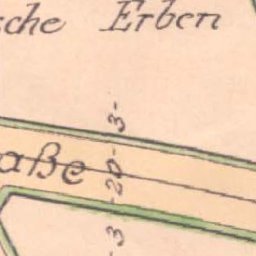 sche Erben
aße
-3-20-3-